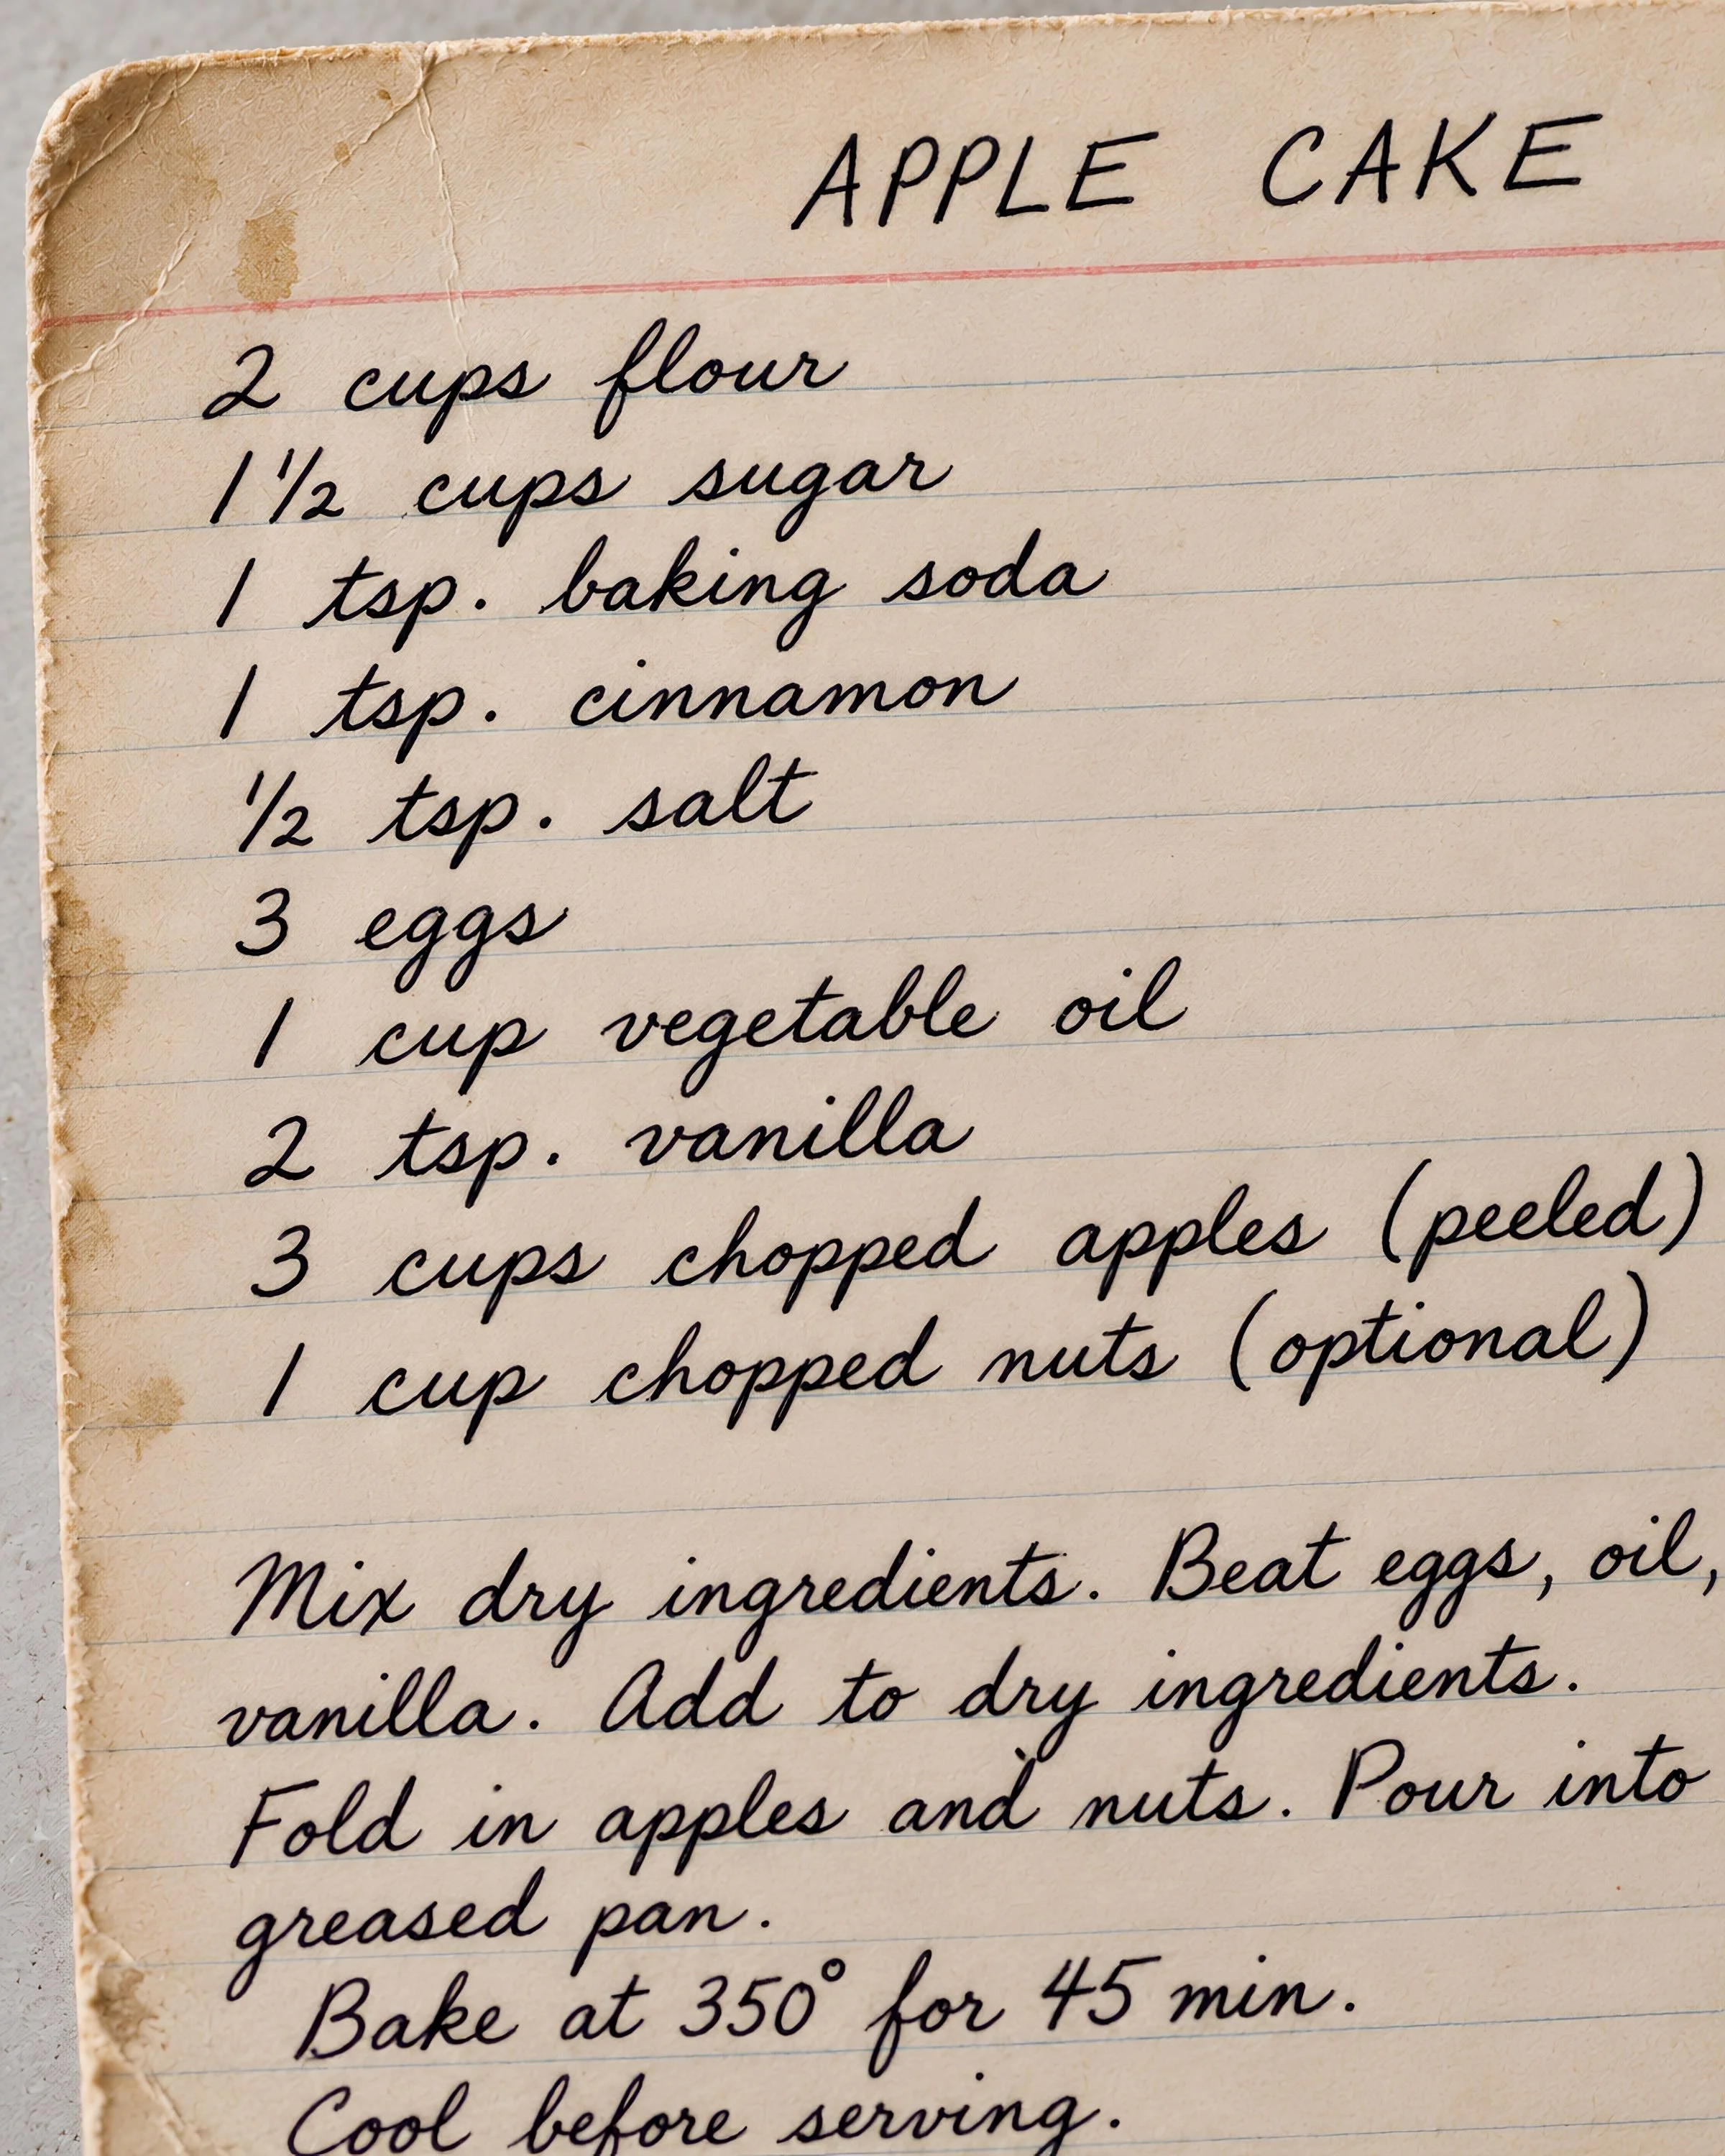 APPLE CAKE
2 cups flour
1 1/2 cups sugar
1 tsp. baking soda
1 tsp. cinnamon
1/2 tsp. salt
3 eggs
1 cup vegetable oil
2 tsp. vanilla
3 cups chopped apples (peeled)
1 cup chopped nuts (optional)
Mix dry ingredients. Beat eggs, oil,
vanilla. Add to dry ingredients.
Fold in apples and nuts. Pour into
greased pan.
Bake at 350° for 45 min.
Cool before serving.